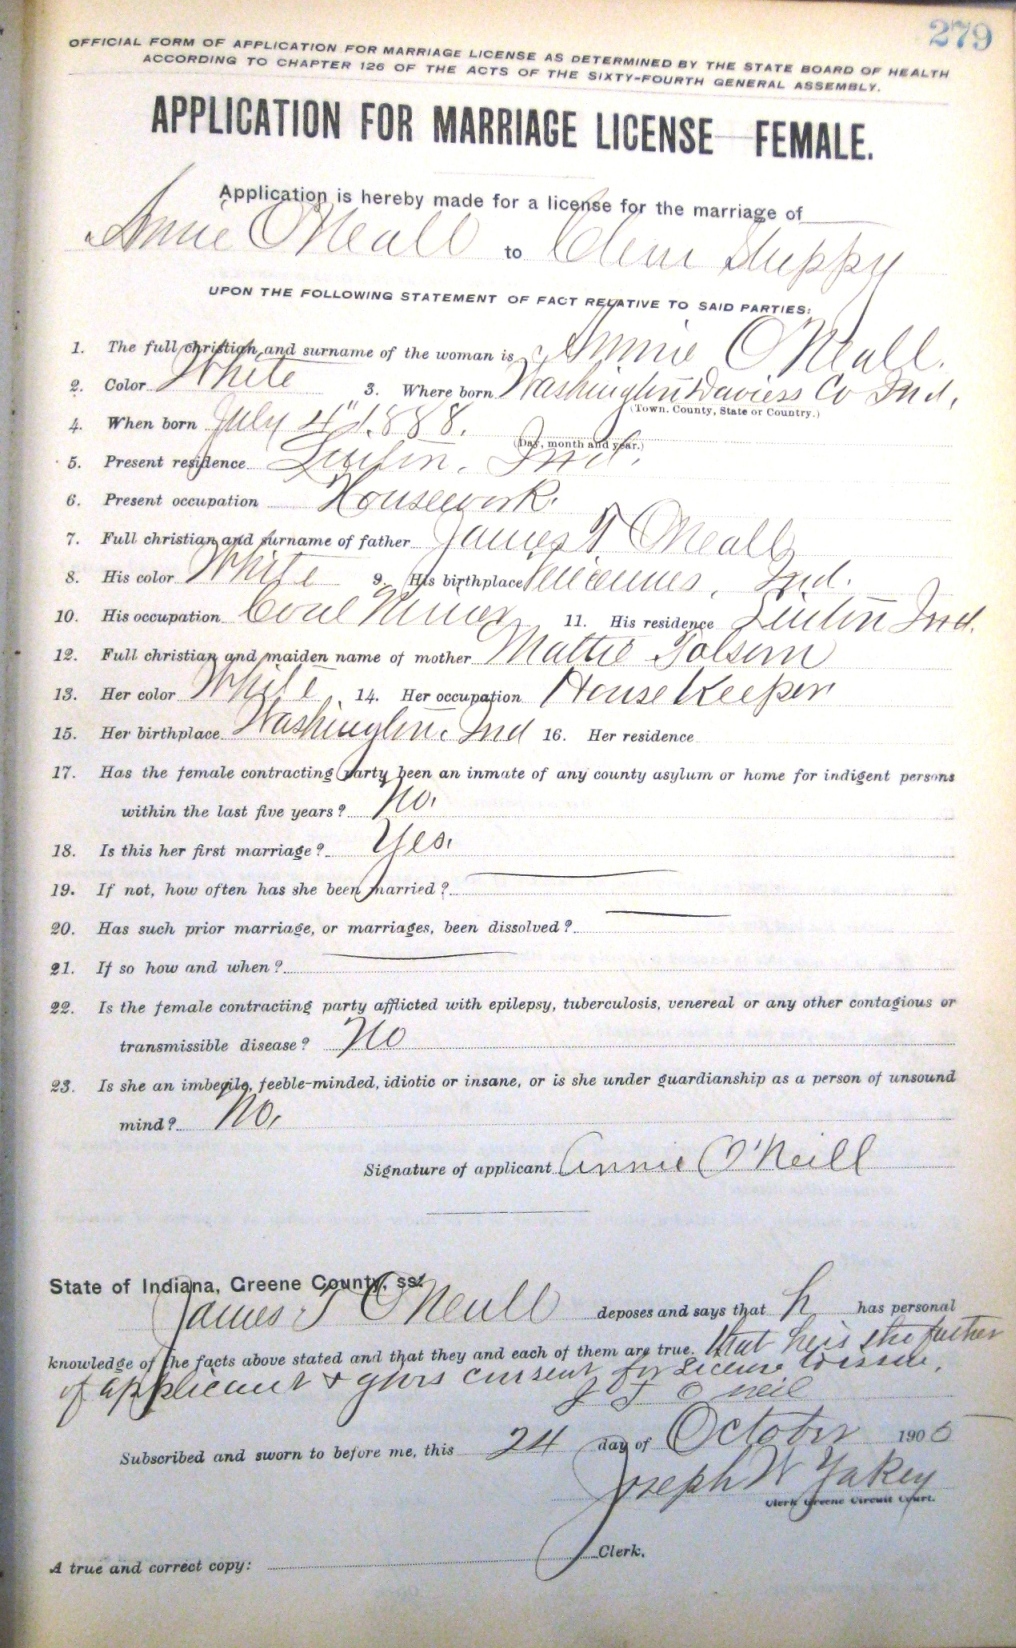 279
OFFICIAL FORM OF APPLICATION FOR MARRIAGE LICENSE AS DETERMINED BY THE STATE BOARD OF HEALTH
ACCORDING TO CHAPTER 126 OF THE ACTS OF THE SIXTY-FOURTH GENERAL ASSEMBLY.
APPLICATION FOR MARRIAGE LICENSE FEMALE.
Application is hereby made for a license for the marriage of
Annie O'Neall to Clem Stuppy
UPON THE FOLLOWING STATEMENT OF FACT RELATIVE TO SAID PARTIES:
1. The full christian and surname of the woman is Annie O'Neall.
2. Color White 3. Where born Washington Daviess Co Ind.
(Town. County, State or Country.)
4. When born July 4" 1888.
(Day, month and year.)
5. Present residence Linton. Ind.
6. Present occupation Housework.
7. Full christian and surname of father James T O'Neall
8. His color White 9. His birthplace Vincennes, Ind.
10. His occupation Coal Miner 11. His residence Linton Ind.
12. Full christian and maiden name of mother Mattie Folsom
13. Her color White, 14. Her occupation House Keeper
15. Her birthplace Washington, Ind 16. Her residence
17. Has the female contracting party been an inmate of any county asylum or home for indigent persons
within the last five years? No.
18. Is this her first marriage? Yes.
19. If not, how often has she been married?
20. Has such prior marriage, or marriages, been dissolved?
21. If so how and when?
22. Is the female contracting party afflicted with epilepsy, tuberculosis, venereal or any other contagious or
transmissible disease? No
23. Is she an imbecile, feeble-minded, idiotic or insane, or is she under guardianship as a person of unsound
mind? No.
Signature of applicant Annie O'Neill
State of Indiana, Greene County, ss:
James T O'Neall deposes and says that h has personal
knowledge of the facts above stated and that they and each of them are true. that he is the father
of applicant & gives consent for License to issue.
J T O neil
Subscribed and sworn to before me, this 24 day of October 190
Joseph W Yakey
Clerk Greene Circuit Court.
A true and correct copy: Clerk.